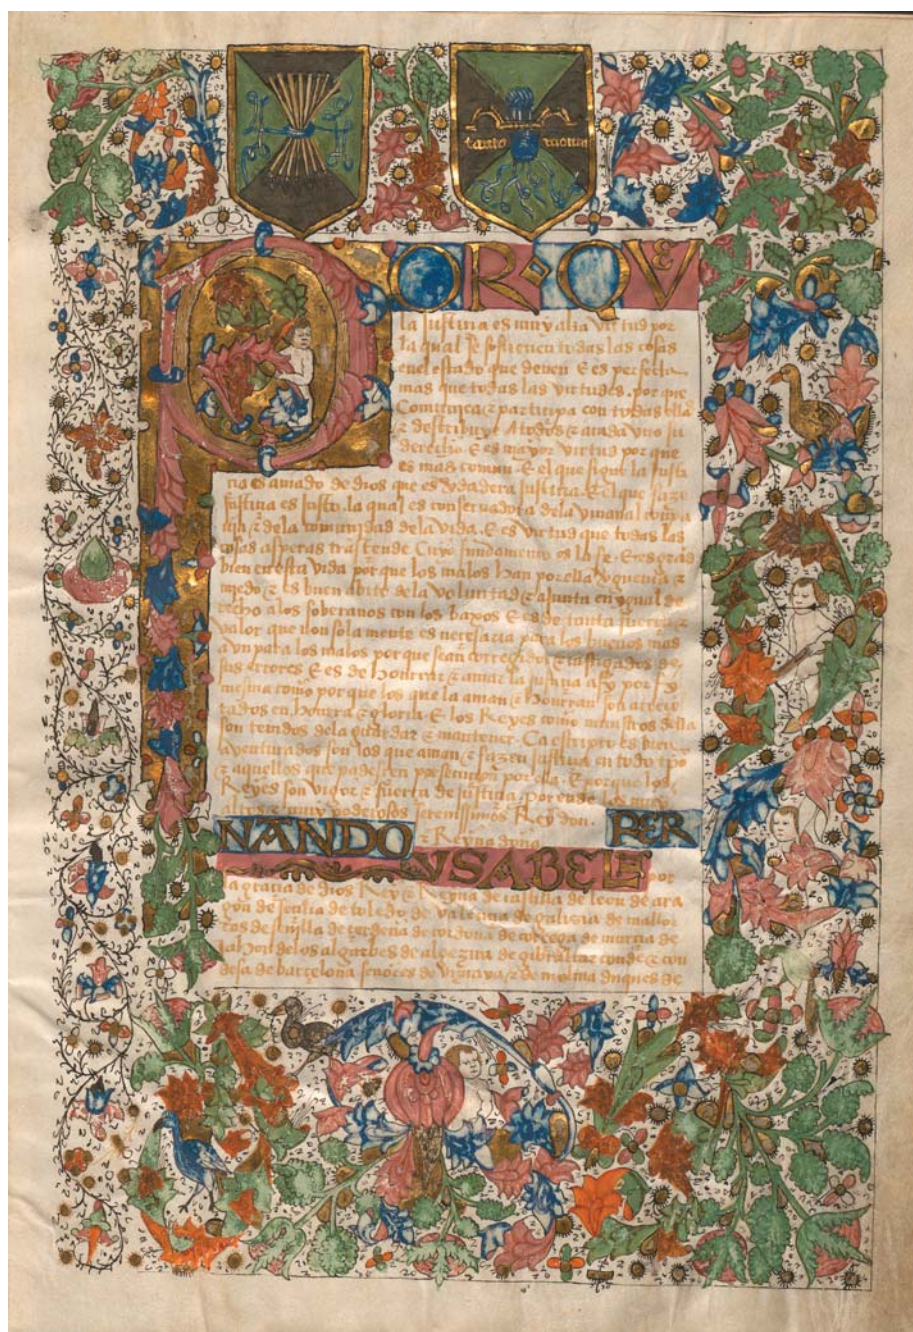 tanto monta
POR · QUE
la justiçia es muy alta virtud por
la qual se sostienen todas las cosas
en el estado que deven & es perfecta
mas que todas las virtudes . por que
Comunica & participa con todas ellas
& destribuye A todos & a cada vno su
derecho & es mayor virtud por que
es mas comun . & el que sigue la justi
çia es amado de dios que es verdadera justiçia . & el que faze
justiçia es justo . la qual es conservadora de la
& de la comunidad de la vida . & es virtud que todas las
cosas asperas trasçende Cuyo fundamento es la fe . & es grãd
bien en esta vida por que los malos han por ella verguença &
miedo & es buen abito de la voluntad & ajunta en ygual de
recho a los soberanos con los baxos & es de tanta fuerça &
valor que non sola mente es neçesaria para los buenos mas
avn para los malos porque seañ corregidos & castigados de
sus errores & es de honrrar & amar la justiçia asy por sy
mesma como porque los que la aman & honrran son acreçe
tados en honrra & gloria & los Reyes como ministros della
son tenidos de la guardar & mantener . Ca escripto es bien
aventurados son los que aman & fazen justiçia en todo tpo
& aquellos que padesçen persecuçion por ella . E porque los
Reyes son vigor & fuerça de justiçia . Por ende los muy
altos & muy poderosos serenissimos Rey don . FER
NANDO & Reyna doña
YSABEL por
la graçia de dios Rey & Reyna de castilla de leon de ara
gon de seçilia de toledo de valençia de galizia de mallor
cas de sevilla de çerdeña de cordova de corçega de murçia de
jahen de los algarbes de algezira de gibraltar conde & con
desa de barçelona señores de vizcaya & de molina duques de